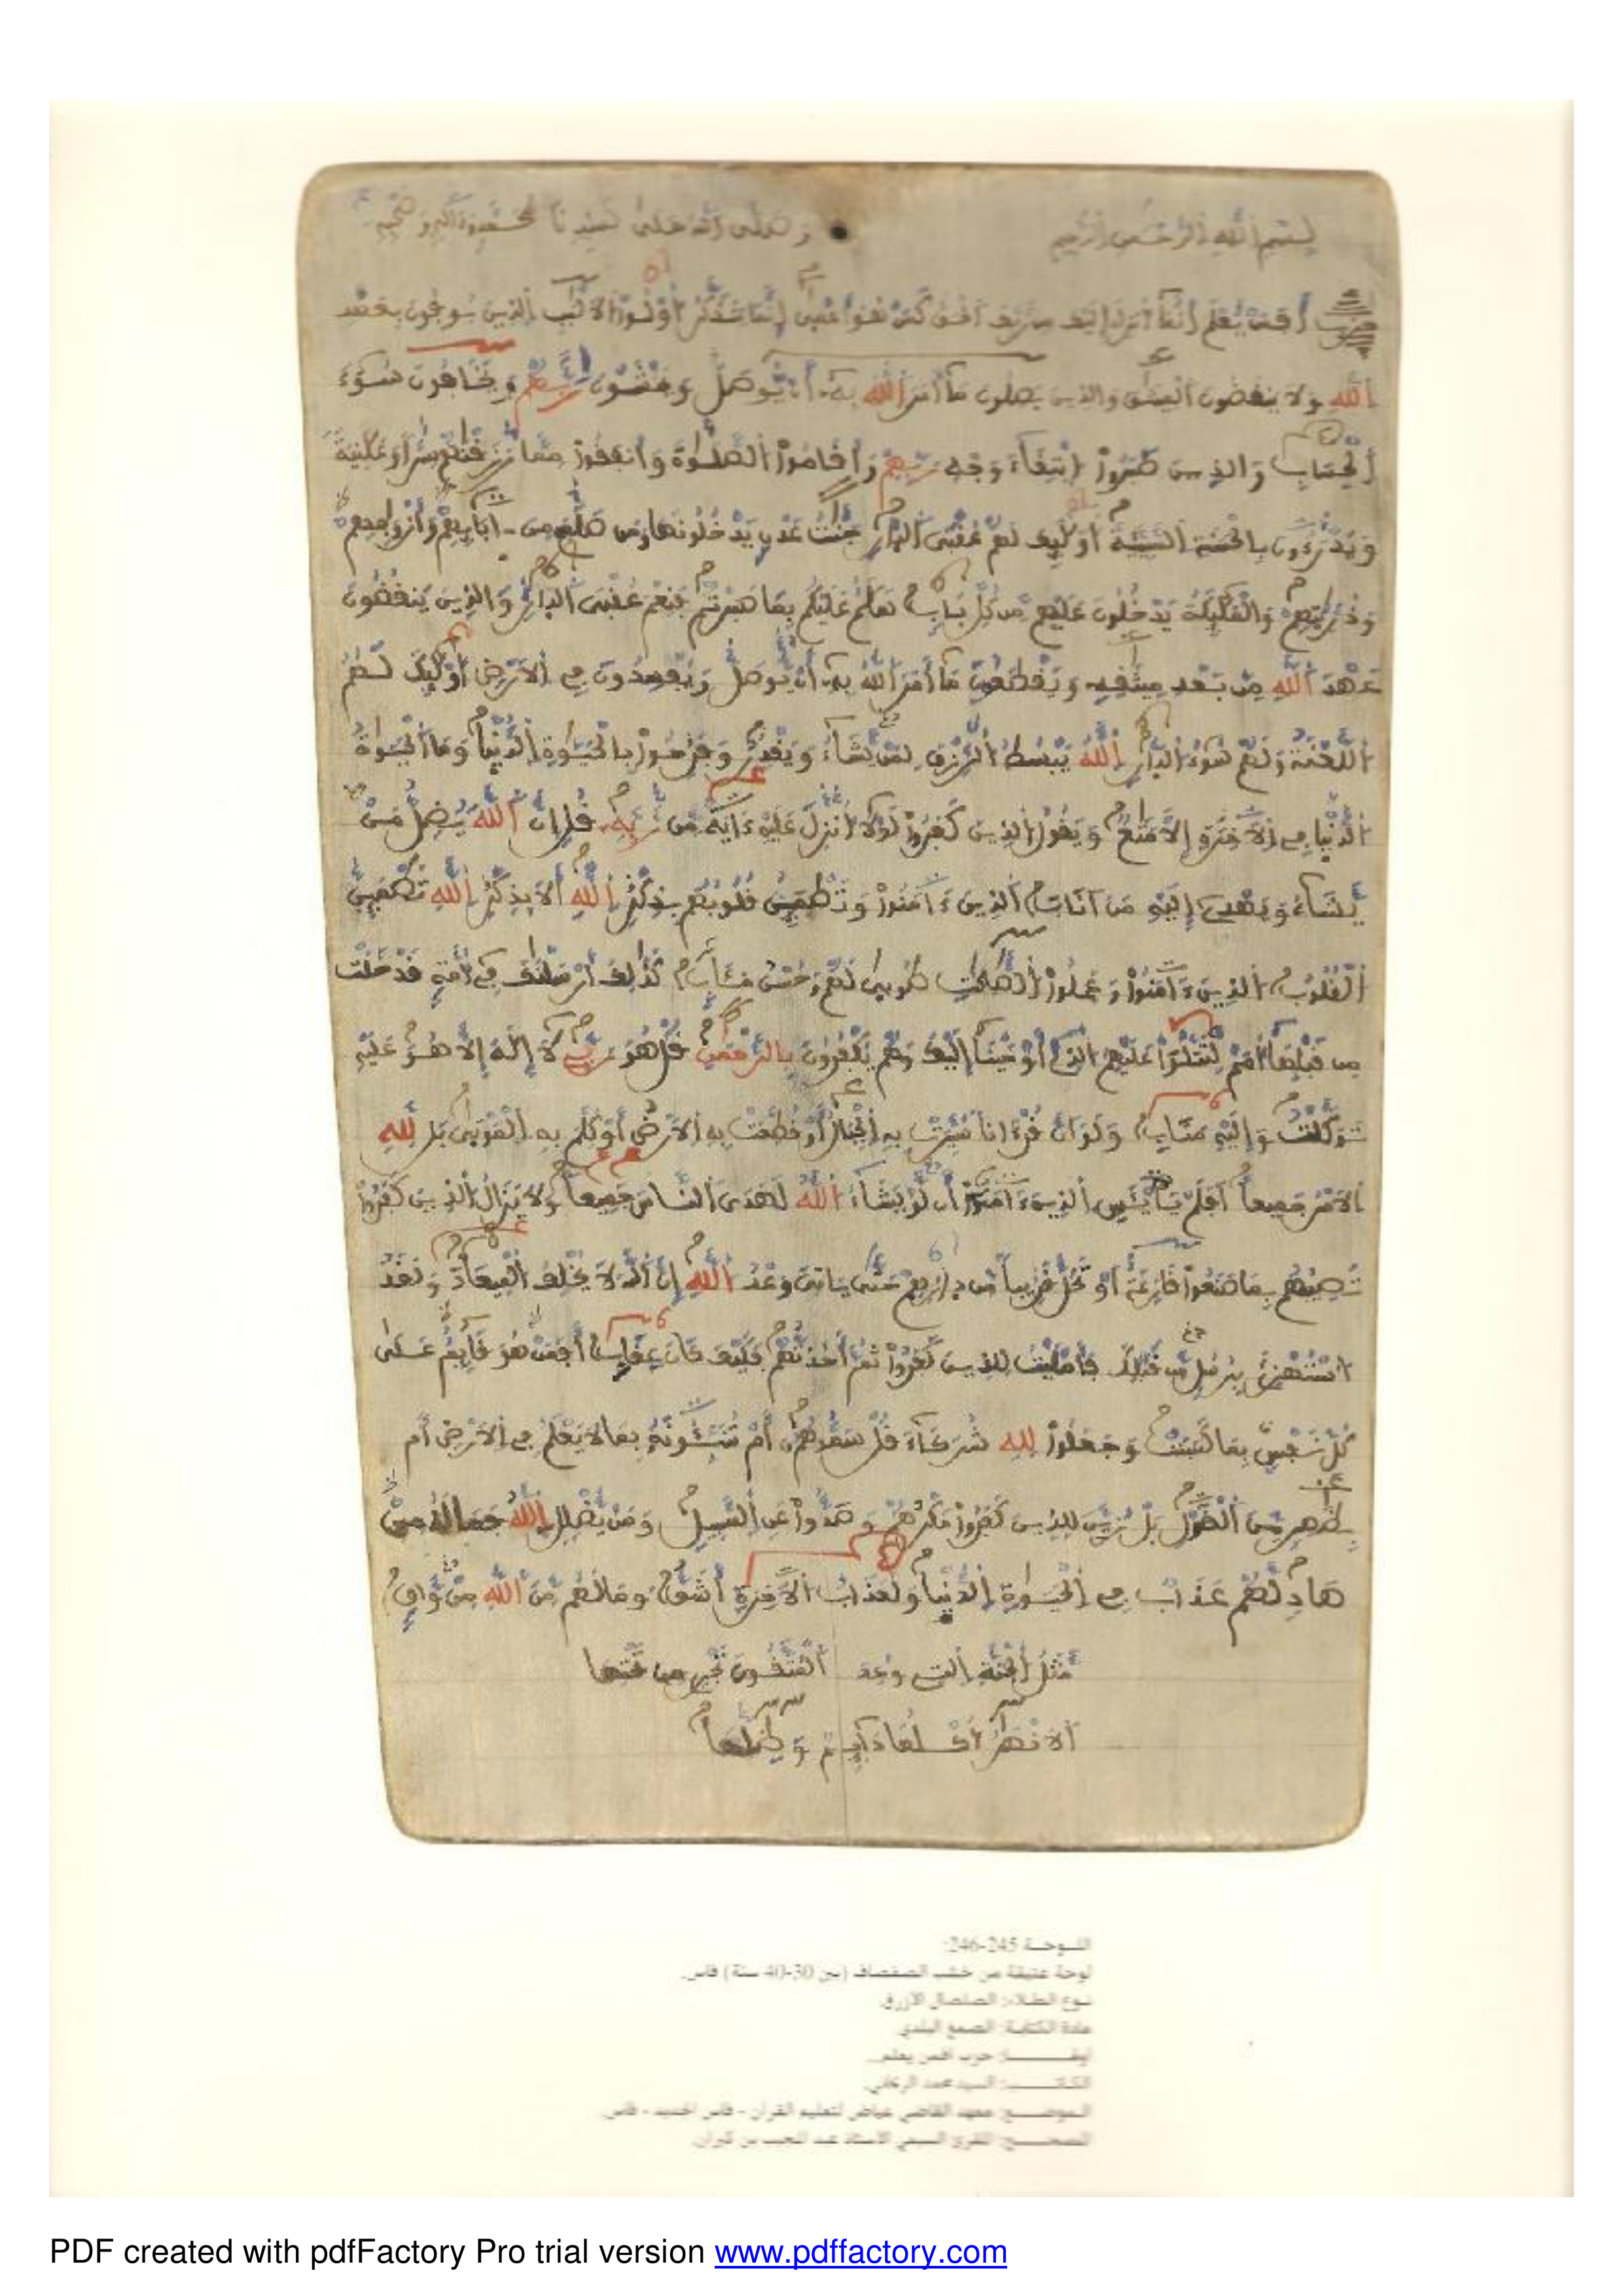 بسم الله الرحمن الرحيم وصلى الله على سيدنا محمد وءاله وصحبه
أفمن يعلم أنما أنزل إليك من ربك الحق كمن هو أعمى إنما يتذكر أولوا الالبب الذين يوفون بعهد
الله ولا ينقضون الميثق والذين يصلون ما أمر الله به أن يوصل ويخشون ربهم ويخافون سوء
الحساب والذين صبروا ابتغاء وجه ربهم وأقاموا الصلوة وأنفقوا مما رزقنهم سرا وعلنية
ويدرءون بالحسنة السيئة أولئك لهم عقبى الدار جنت عدن يدخلونها ومن صلح من ءابائهم وأزوجهم
وذريتهم والملئكة يدخلون عليهم من كل باب سلم عليكم بما صبرتم فنعم عقبى الدار والذين ينقضون
عهد الله من بعد ميثقه ويقطعون ما أمر الله به أن يوصل ويفسدون في الارض أولئك لهم
اللعنة ولهم سوء الدار الله يبسط الرزق لمن يشاء ويقدر وفرحوا بالحيوة الدنيا وما الحيوة
الدنيا في الاخرة إلا متع ويقول الذين كفروا لولا أنزل عليه ءاية من ربه قل إن الله يضل من
يشاء ويهدي إليه من اناب الذين ءامنوا وتطمئن قلوبهم بذكر الله ألا بذكر الله تطمئن
القلوب الذين ءامنوا وعملوا الصلحت طوبى لهم وحسن مئاب كذلك أرسلنك في أمة قد خلت
من قبلها أمم لتتلوا عليهم الذي أوحينا إليك وهم يكفرون بالرحمن قل هو ربي لا إله إلا هو عليه
توكلت وإليه متاب ولو ان قرءانا سيرت به الجبال أو قطعت به الارض أو كلم به الموتى بل لله
الامر جميعا أفلم يايئس الذين ءامنوا أن لو يشاء الله لهدى الناس جميعا ولا يزال الذين كفروا
تصيبهم بما صنعوا قارعة أو تحل قريبا من دارهم حتى ياتي وعد الله إن الله لا يخلف الميعاد ولقد
استهزئ برسل من قبلك فأمليت للذين كفروا ثم أخذتهم فكيف كان عقاب أفمن هو قائم على
كل نفس بما كسبت وجعلوا لله شركاء قل سموهم أم تنبئونه بما لا يعلم في الارض أم
بظهر من القول بل زين للذين كفروا مكرهم وصدوا عن السبيل ومن يضلل الله فما له من
هاد لهم عذاب في الحيوة الدنيا ولعذاب الاخرة أشق وما لهم من الله من واق
مثل الجنة التي وعد المتقون تجري من تحتها
الانهر أكلها دائم وظلها
اللوحة 245-246:
لوحة عتيقة من خشب الصفصاف (بين 30-40 سنة) فاس.
نوع الطلاء: الصلصال الأزرق.
مادة الكتابة: الصمغ البلدي.
حزب افمن يعلم.
الكاتب: السيد محمد
الموضع: معهد القاضي عياض لتعليم القرآن - فاس الجديد - فاس.
المصحح: المقرئ السبعي الأستاذ عبد المجيد بن كيران.
PDF created with pdfFactory Pro trial version www.pdffactory.com